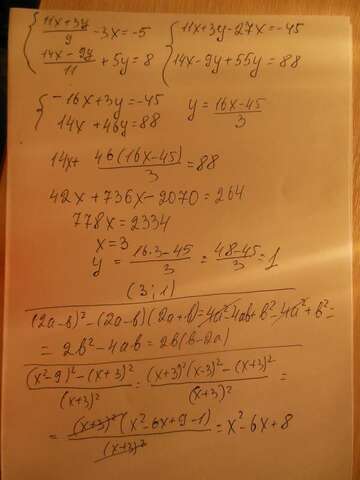 { (11x+3y)/9 - 3x = -5 { 11x+3y-27x = -45
(14x-9y)/11 + 5y = 8 14x-9y+55y = 88
{ -16x+3y = -45 y = (16x-45)/3
14x+46y = 88
14x + 46(16x-45)/3 = 88
42x + 736x - 2070 = 264
778x = 2334
x = 3
y = (16·3-45)/3 = (48-45)/3 = 1
(3; 1)
(2a-b)² - (2a-b)(2a+b) = 4a² - 4ab + b² - 4a² + b² =
= 2b² - 4ab = 2b(b-2a)
((x²-9)² - (x+3)²)/(x+3)² = ((x+3)²(x-3)² - (x+3)²)/(x+3)² =
= ((x+3)²(x²-6x+9-1))/(x+3)² = x²-6x+8